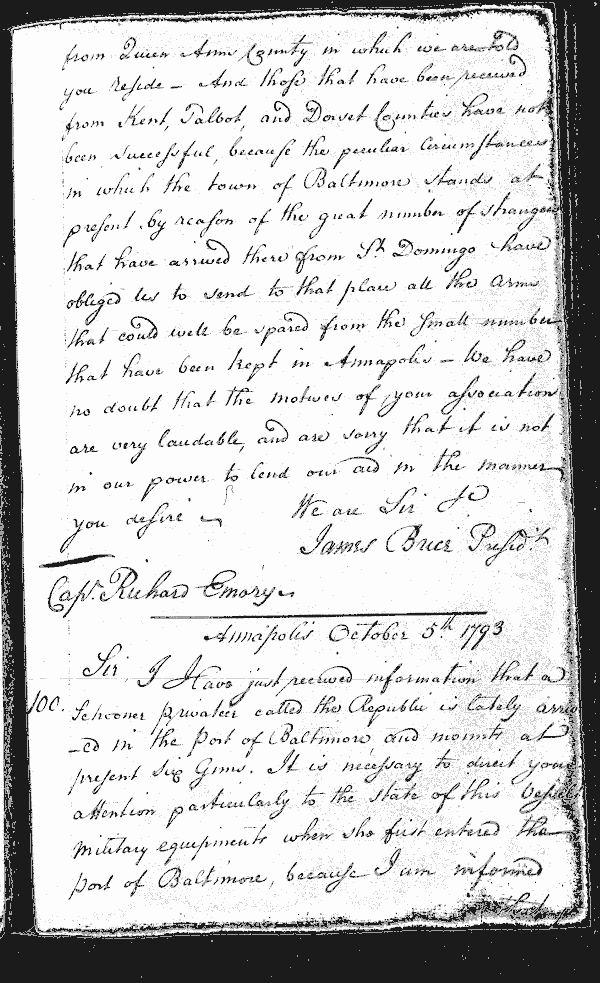 from Queen Ann County in which we are told
you reside – And those that have been received
from Kent, Talbot, and Dorset Counties have not
been successful, because the peculiar Circumstances
in which the town of Baltimore stands at
present by reason of the great number of strangers
that have arrived there from St. Domingo have
obliged us to send to that place all the arms
that could well be spared from the small number
that have been kept in Annapolis – We have
no doubt that the motives of your association
are very laudable, and are sorry that it is not
in our power to lend our aid in the manner
you desire
We are Sir &c
James Brice Presid.t
Cap.t Richard Emory
Annapolis October 5th 1793
Sir I Have just received information that a
100. Schooner privateer called the Republic is lately arriv
-ed in the Port of Baltimore and mounts at
present six Guns. It is necessary to direct your
attention particularly to the state of this Vessels
military equipments when she first entered the
port of Baltimore, because I am informed